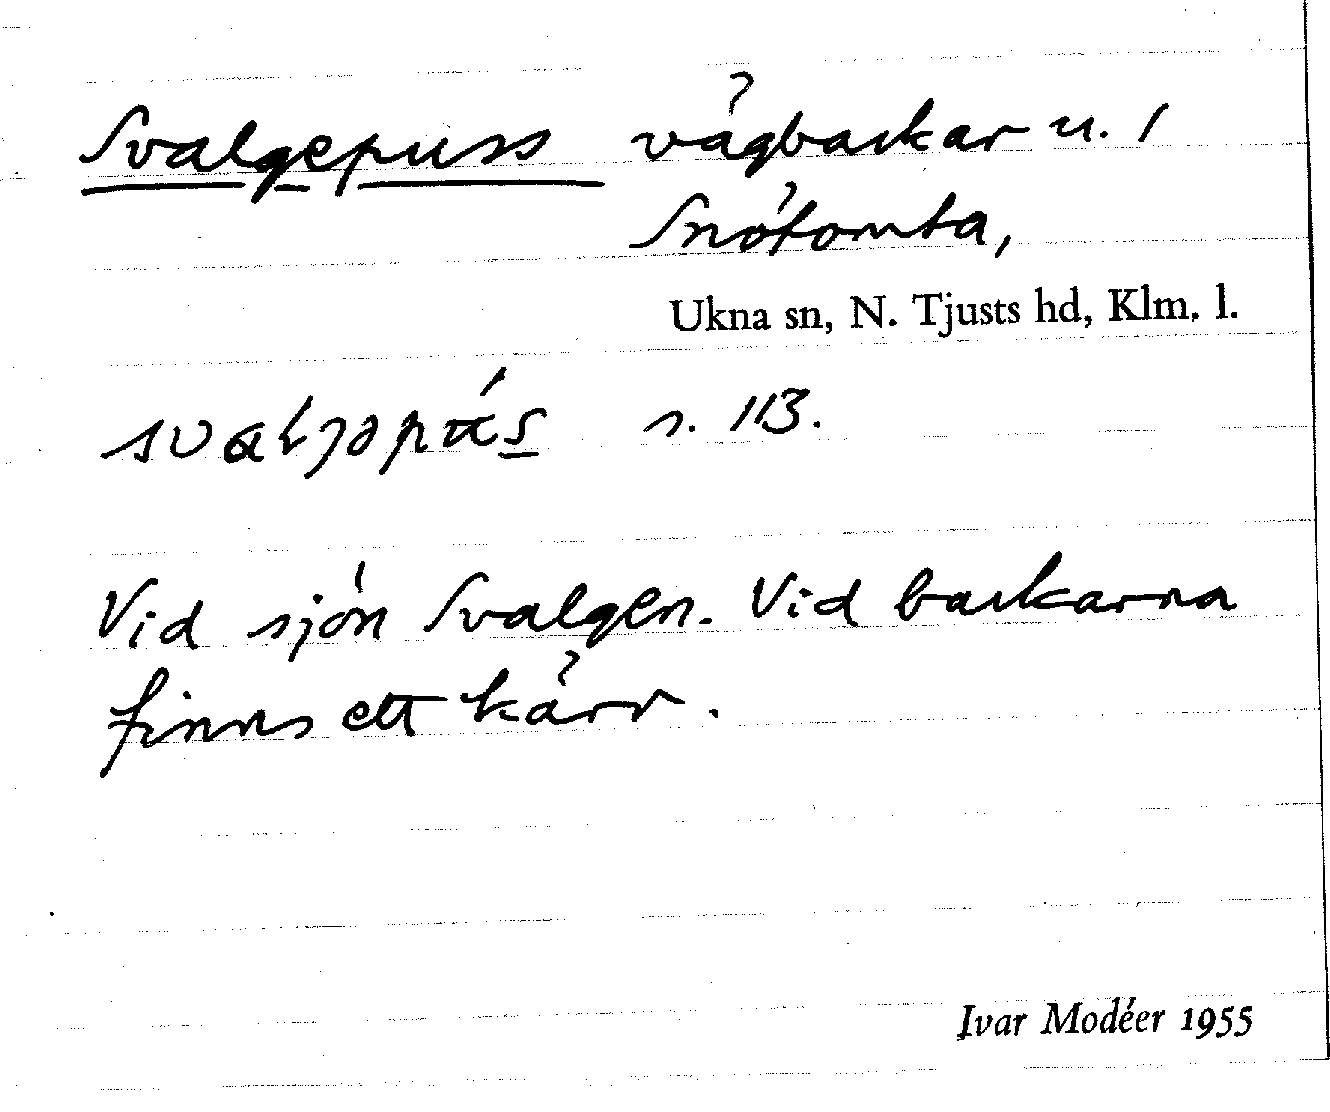 Svalgepuss vägbackar u. 1
Snötomta,
Ukna sn, N. Tjusts hd, Klm. l.
s. 113.
Vid sjön Svalgen. Vid backarna
finns ett kärr.
Ivar Modéer 1955